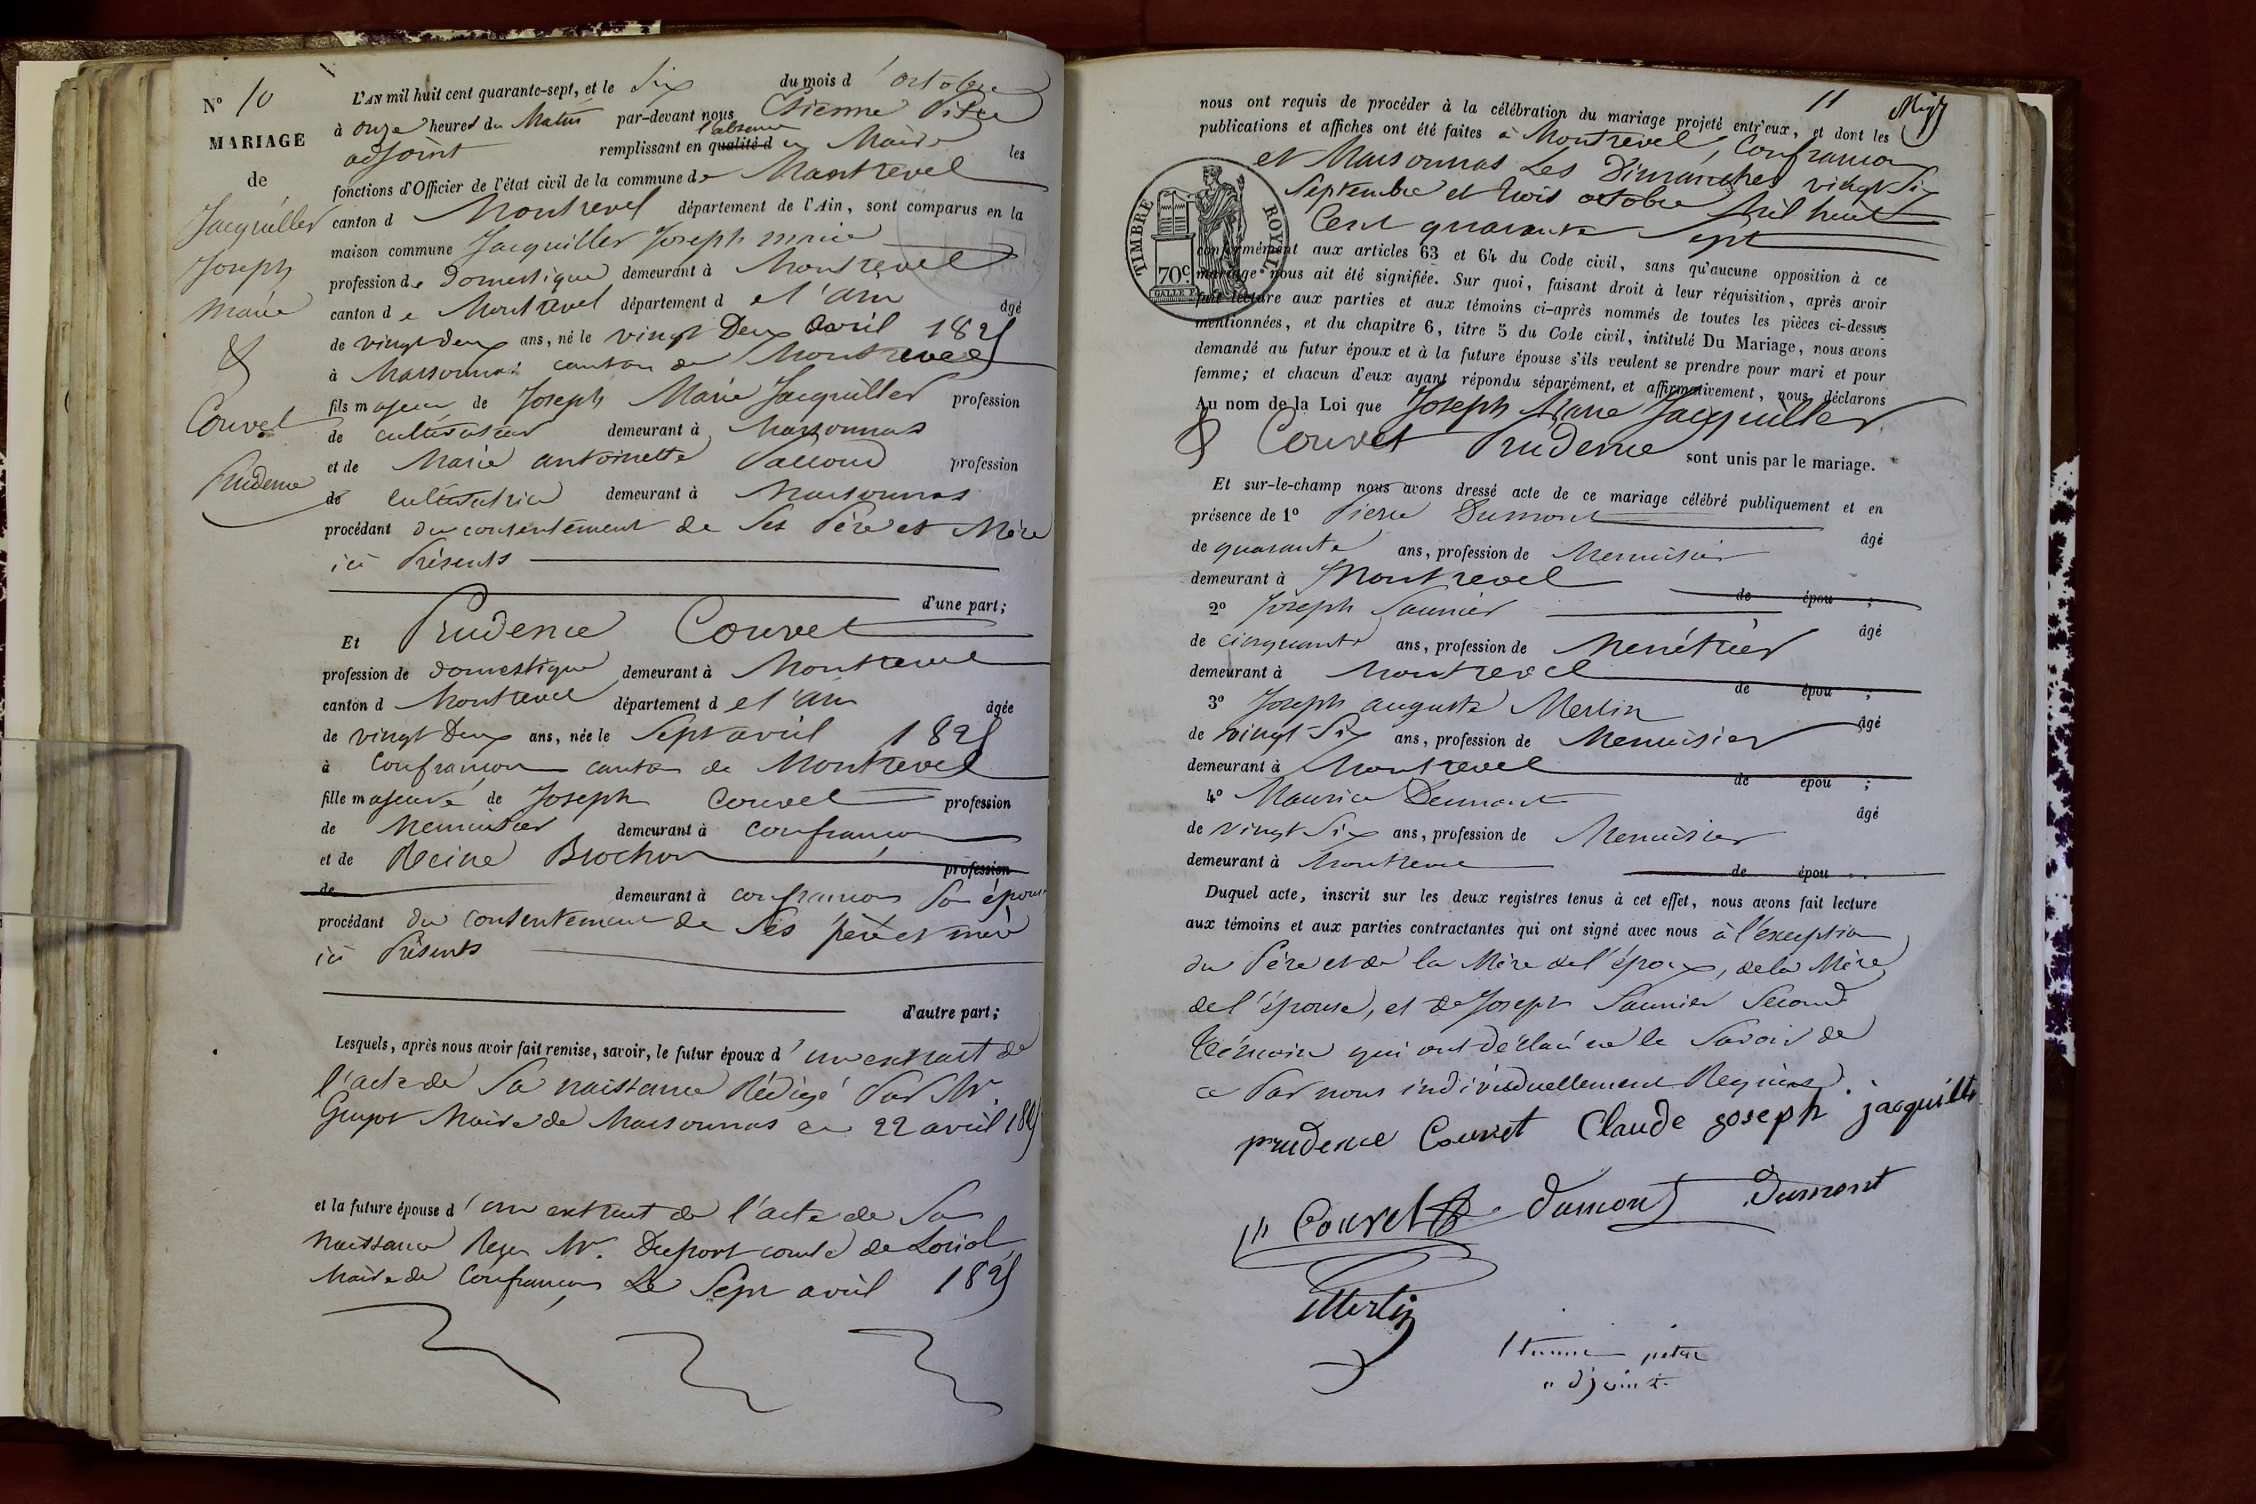 N° 10
MARIAGE
de
Jacquiller
Joseph
Marie
&
Couvet
Prudence
L'AN mil huit cent quarante-sept, et le Six du mois d'octobre
à onze heures du Matin par-devant nous Etienne Pitre
adjoint remplissant en l'absence qualité d u Maire les
fonctions d'Officier de l'état civil de la commune de Montrevel
canton d Montrevel département de l'Ain, sont comparus en la
maison commune Jacquiller Joseph marie
profession de domestique demeurant à Montrevel
canton d e Montrevel département d e l'ain âgé
de vingt deux ans, né le vingt Deux avril 1825
à Marsonnas canton de Montrevel
fils majeur de Joseph Marie Jacquiller profession
de cultivateur demeurant à Marsonnas
et de Marie antoinette Palloud profession
de cultivatrice demeurant à Marsonnas
procédant du consentement de Ses Père et Mère
ici Présents
d'une part;
Et Prudence Couvet
profession de domestique demeurant à Montrevel
canton d Montrevel département d e l'ain âgée
de vingt Deux ans, née le Sept avril 1825
à Confrançon canton de Montrevel
fille majeure de Joseph Couvet profession
de Menuisier demeurant à Confrançon
et de Reine Brochon profession
de demeurant à confrançon Son épouse
procédant du consentement de Ses père et mère
ici Présents
d'autre part;
Lesquels, après nous avoir fait remise, savoir, le futur époux d'un extrait de
l'acte de Sa naissance Rédigé Par Mr.
Guyot Maire de Marsonnas en 22 avril 1825
et la future épouse d'un extrait de l'acte de Sa
Naissance Reçu Mr. Duport comte de Loriol
Maire de Confrançon Le Sept avril 1825
11
nous ont requis de procéder à la célébration du mariage projeté entr'eux, et dont les
publications et affiches ont été faites à Montrevel, Confrançon
et Marsonnas Les Dimanches vingt Six
Septembre et trois octobre Mil huit
Cent quarante Sept
TIMBRE ROYAL
70c
conformément aux articles 63 et 64 du Code civil, sans qu'aucune opposition à ce
mariage nous ait été signifiée. Sur quoi, faisant droit à leur réquisition, après avoir
fait lecture aux parties et aux témoins ci-après nommés de toutes les pièces ci-dessus
mentionnées, et du chapitre 6, titre 5 du Code civil, intitulé Du Mariage, nous avons
demandé au futur époux et à la future épouse s'ils veulent se prendre pour mari et pour
femme; et chacun d'eux ayant répondu séparément, et affirmativement, nous déclarons
Au nom de la Loi que Joseph Marie Jacquiller
& Couvet Prudence sont unis par le mariage.
Et sur-le-champ nous avons dressé acte de ce mariage célébré publiquement et en
présence de 1° Pierre Dumont âgé
de quarante ans, profession de Menuisier
demeurant à Montrevel de épou ;
2° Joseph Saunier âgé
de cinquante ans, profession de Menétrier
demeurant à Montrevel de épou ;
3° Joseph auguste Merlin âgé
de vingt Six ans, profession de Menuisier
demeurant à Montrevel de épou ;
4° Maurice Dumont âgé
de vingt Six ans, profession de Menuisier
demeurant à Montrevel de épou
Duquel acte, inscrit sur les deux registres tenus à cet effet, nous avons fait lecture
aux témoins et aux parties contractantes qui ont signé avec nous à l'exception
du Père et de la Mère de l'époux, de la Mère
de l'épouse, et de Joseph Saunier Second
témoin qui ont déclaré ne le Savoir de
ce Par nous individuellement Requis.
prudence Couvet Claude joseph jacquiller
Couvet Dumont Dumont
Merlin
Etienne pitre
adjoint